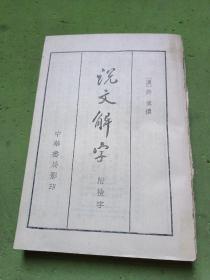 〔漢〕許慎撰
说文解字
附檢字
中華書局影印